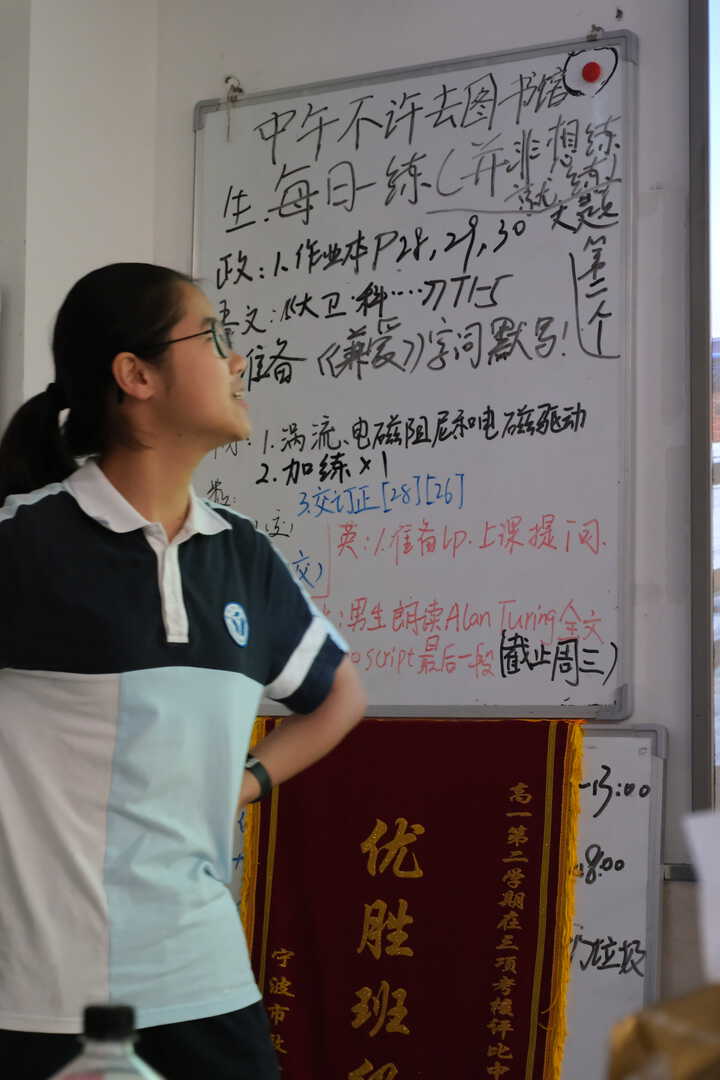 中午不许去图书馆
生:每日一练(并非想练
就练)
大题
政:1.作业本P28,29,30
第二个
语文:《大卫·科……》T1-5
准备《兼爱》字词默写!
1.涡流、电磁阻尼和电磁驱动
2.加练×1
3.交订正[28][26]
英:1.准备Up.上课提问.
:男生朗读Alan Turing全文
script最后一段(截止周三)
-13:00
8:00
垃圾
高一第二学期在三项考核评比中
优胜班级
宁波市